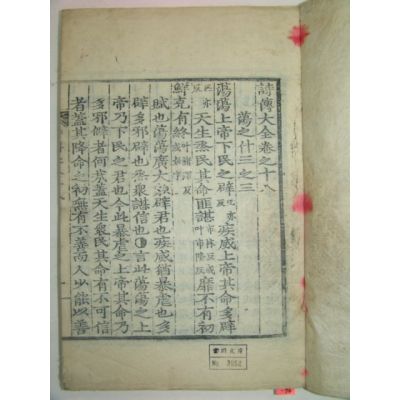 詩傳大全卷之十八
蕩之什三之三
蕩蕩上帝下民之辟 疾威上帝其命多辟
天生烝民其命匪諶 靡不有初
鮮克有終
賦也蕩蕩廣大貌辟君也疾威猶暴虐也多
辟多邪辟也烝衆諶信也○言此蕩蕩之上
帝乃下民之君也今此暴虐之上帝其命乃
多邪僻者何哉蓋天生衆民其命有不可信
者蓋其降命之初無有不善而人少能以善
No 3052